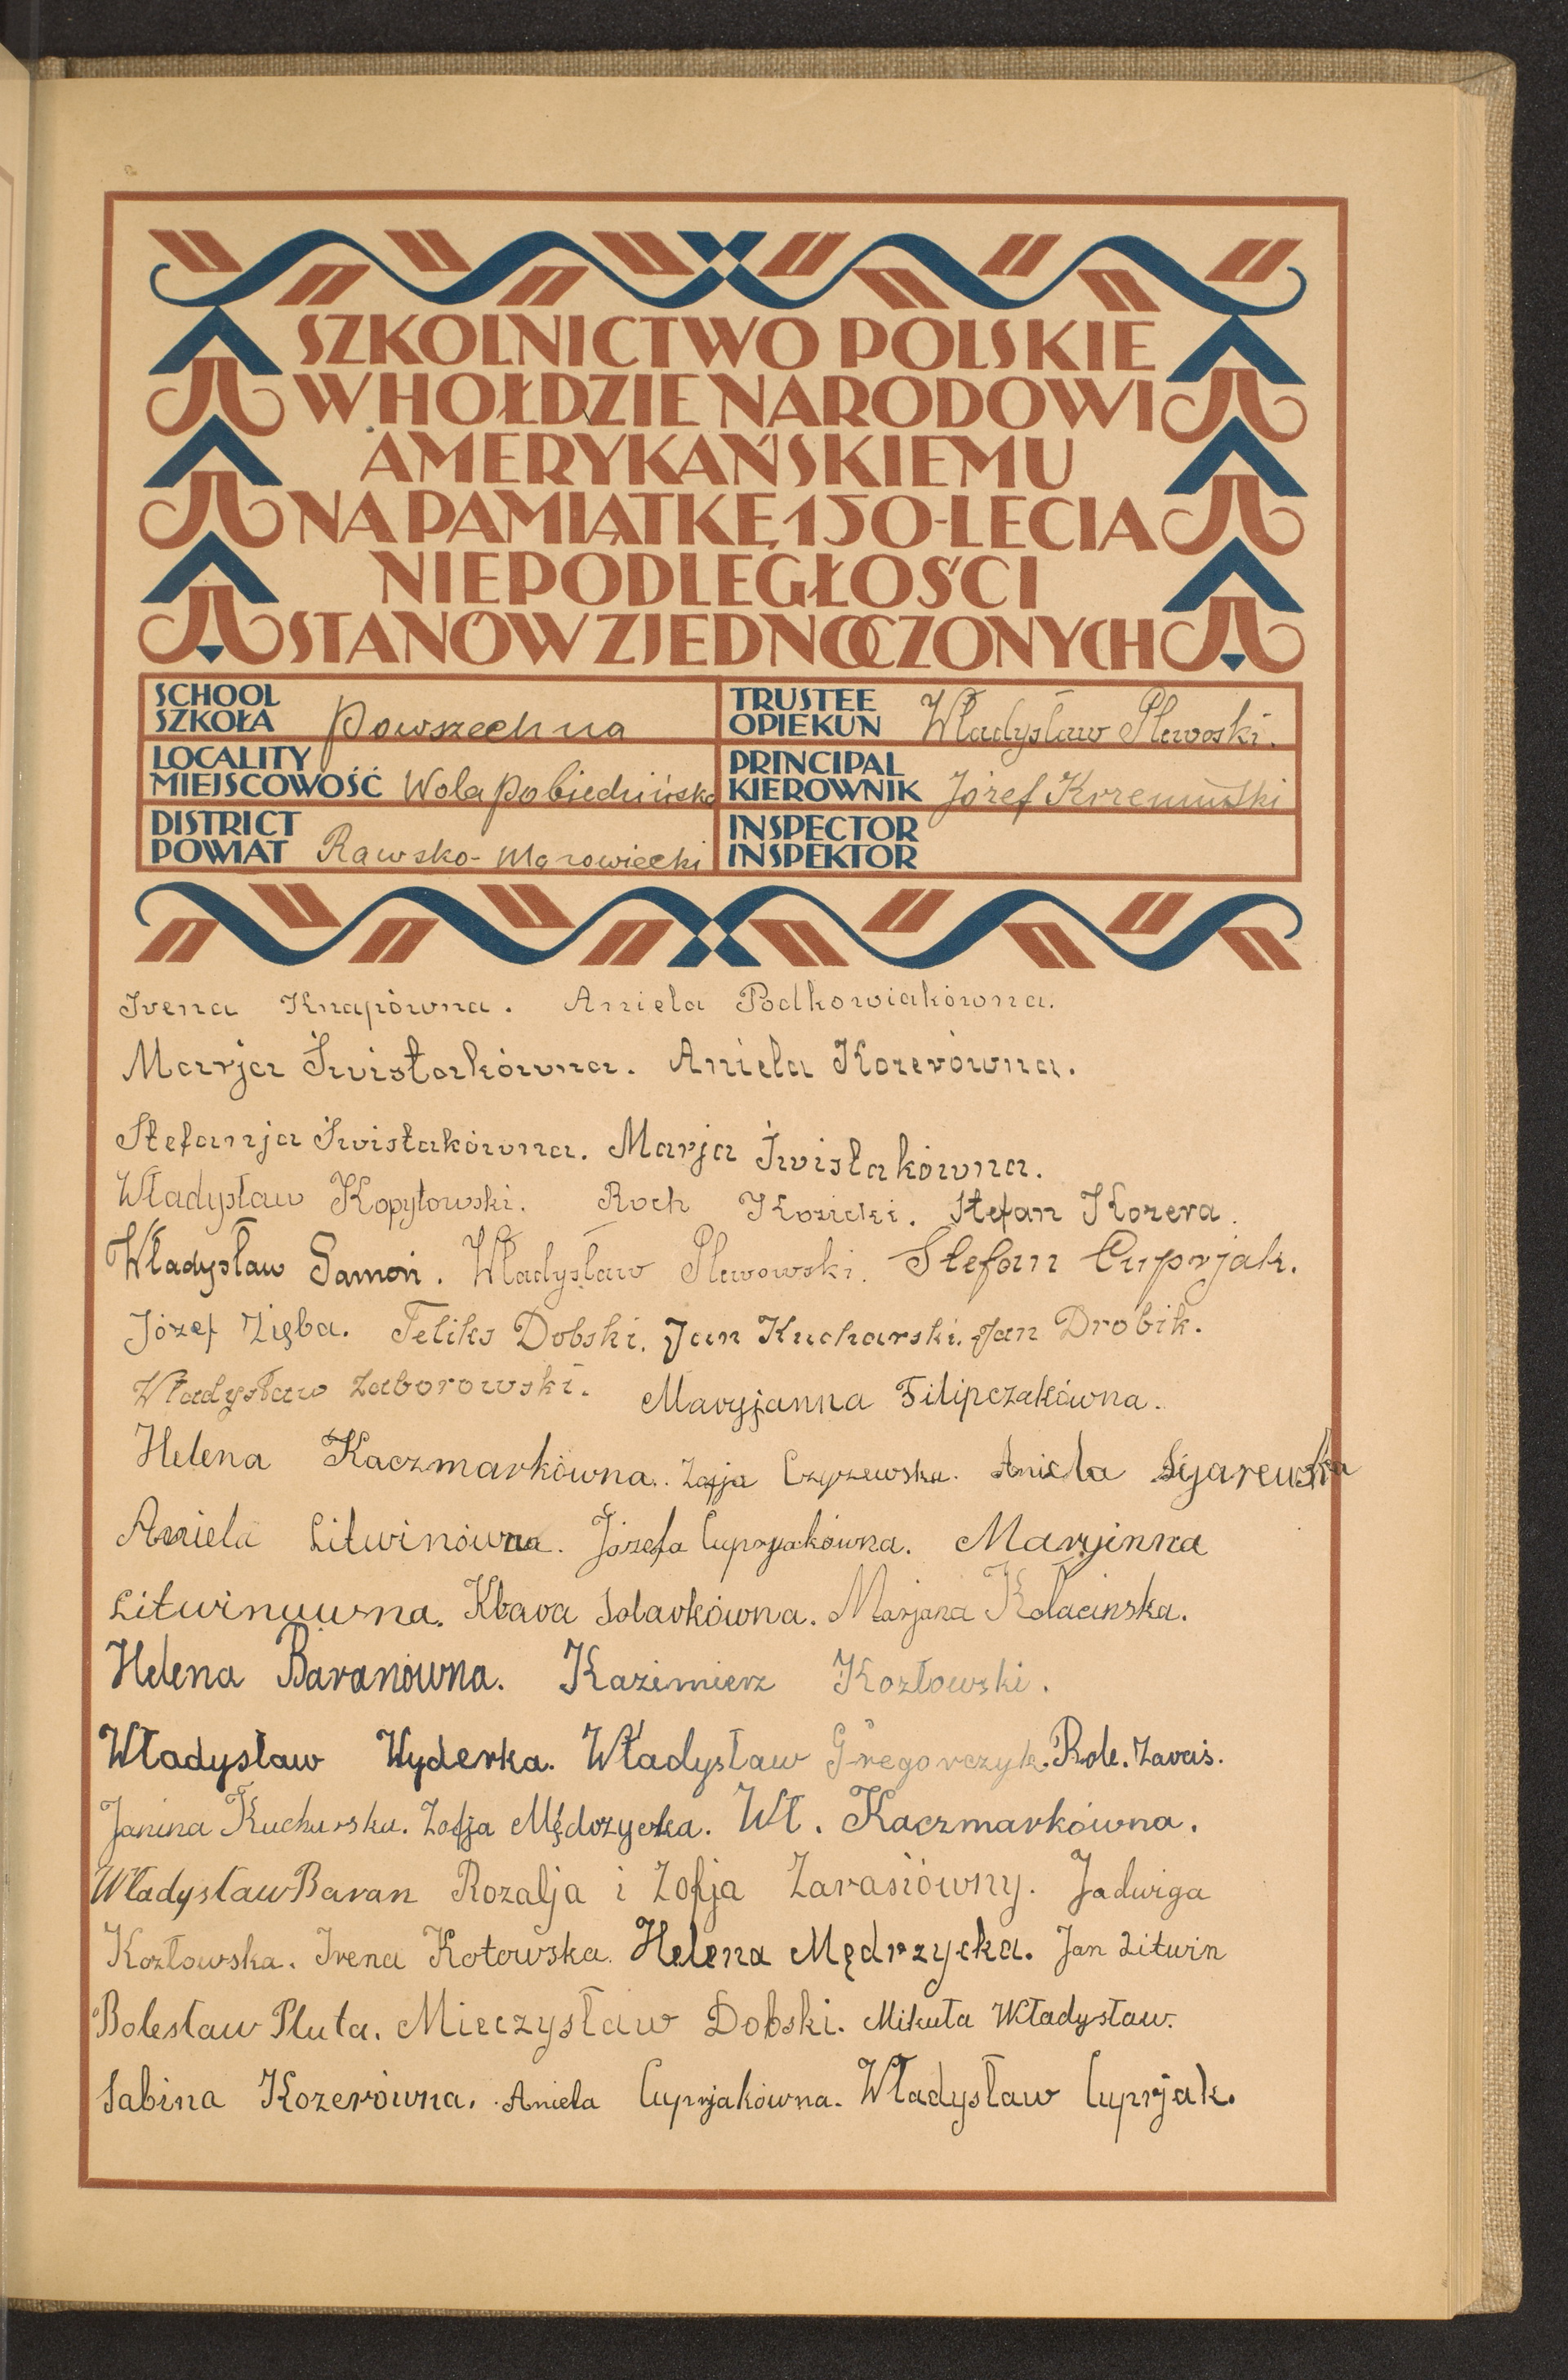 SZKOLNICTWO POLSKIE
W HOŁDZIE NARODOWI
AMERYKAŃSKIEMU
NA PAMIĄTKĘ 150-LECIA
NIEPODLEGŁOŚCI
STANÓW ZJEDNOCZONYCH
SCHOOL
SZKOŁA Powszechna
TRUSTEE
OPIEKUN Władysław Plewoski.
LOCALITY
MIEJSCOWOŚĆ Wola Pobiedzińska
PRINCIPAL
KIEROWNIK Józef Krzemiński
DISTRICT
POWIAT Rawsko-Mazowiecki
INSPECTOR
INSPEKTOR
Irena Knapówna. Aniela Podkowiakówna.
Marja Świstakówna. Aniela Kozerówna.
Stefanja Świstakówna. Marja Świstakówna.
Władysław Kopytowski. Roch Kozicki. Stefan Kozera.
Władysław Samoń. Władysław Plewowski. Stefan Cuprjak.
Józef Zięba. Feliks Dobski. Jan Kucharski. Jan Drobik.
Władysław Zaborowski. Maryjanna Filipczakówna.
Helena Kaczmarkówna. Zofja Czyżewska. Aniela
Aniela Litwinówna. Józefa Cuprjakówna. Maryinna
Litwinuwna. Klara Solarkówna. Marjana Kołacinska.
Helena Baranówna. Kazimierz Kozłowski.
Władysław Wyderka. Władysław Gregorczyk. Role. Zaraś.
Janina Kucharska. Zofja Mędrzycka. Wł. Kaczmarkówna.
Władysław Baran Rozalja i Zofja Zarasiówny. Jadwiga
Kozłowska. Irena Kotowska. Helena Mędrzycka. Jan Litwin
Bolesław Pluta. Mieczysław Dobski. Mikuła Władysław.
Sabina Kozerówna. Aniela Cuprjakówna. Władysław Cuprjak.